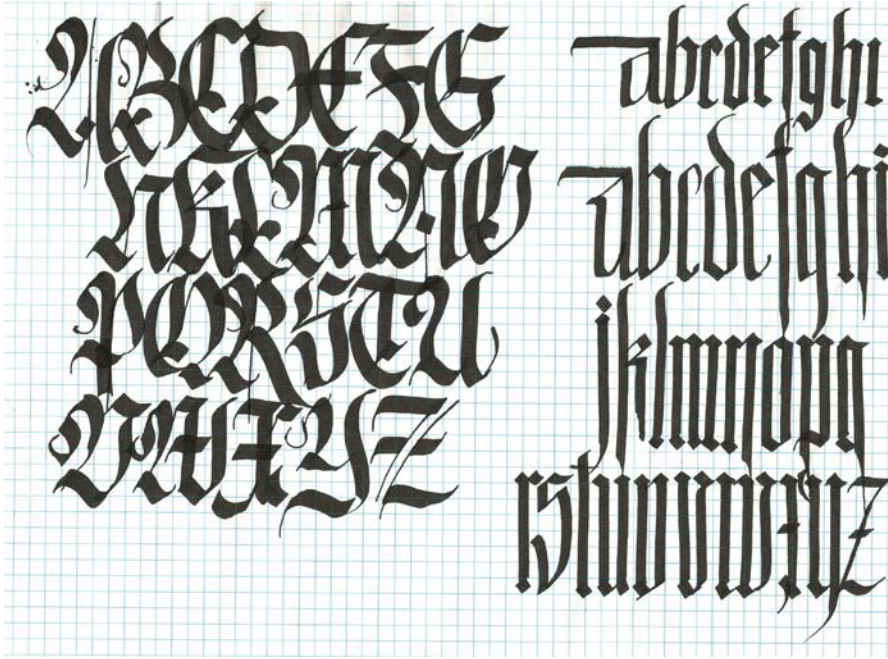 ABCDEFG
HKLMNO
PQRSTU
VWXYZ
abcdefghi
abcdefghi
jklmnopq
rstuvwxyz